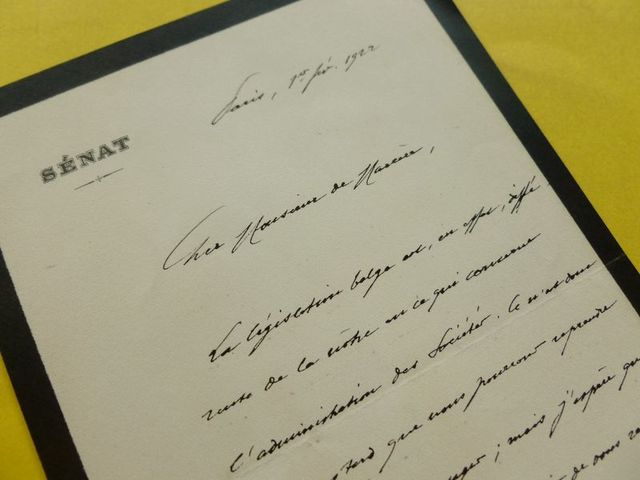 SÉNAT
Paris, 1er fév. 1922
Cher Monsieur de Marcère,
La législation belge est, en effet, diffé
rente de la nôtre en ce qui concerne
l'administration des Sociétés. Ce n'est donc
tard que nous pourrons reprendre
; mais j'espère que
de vous